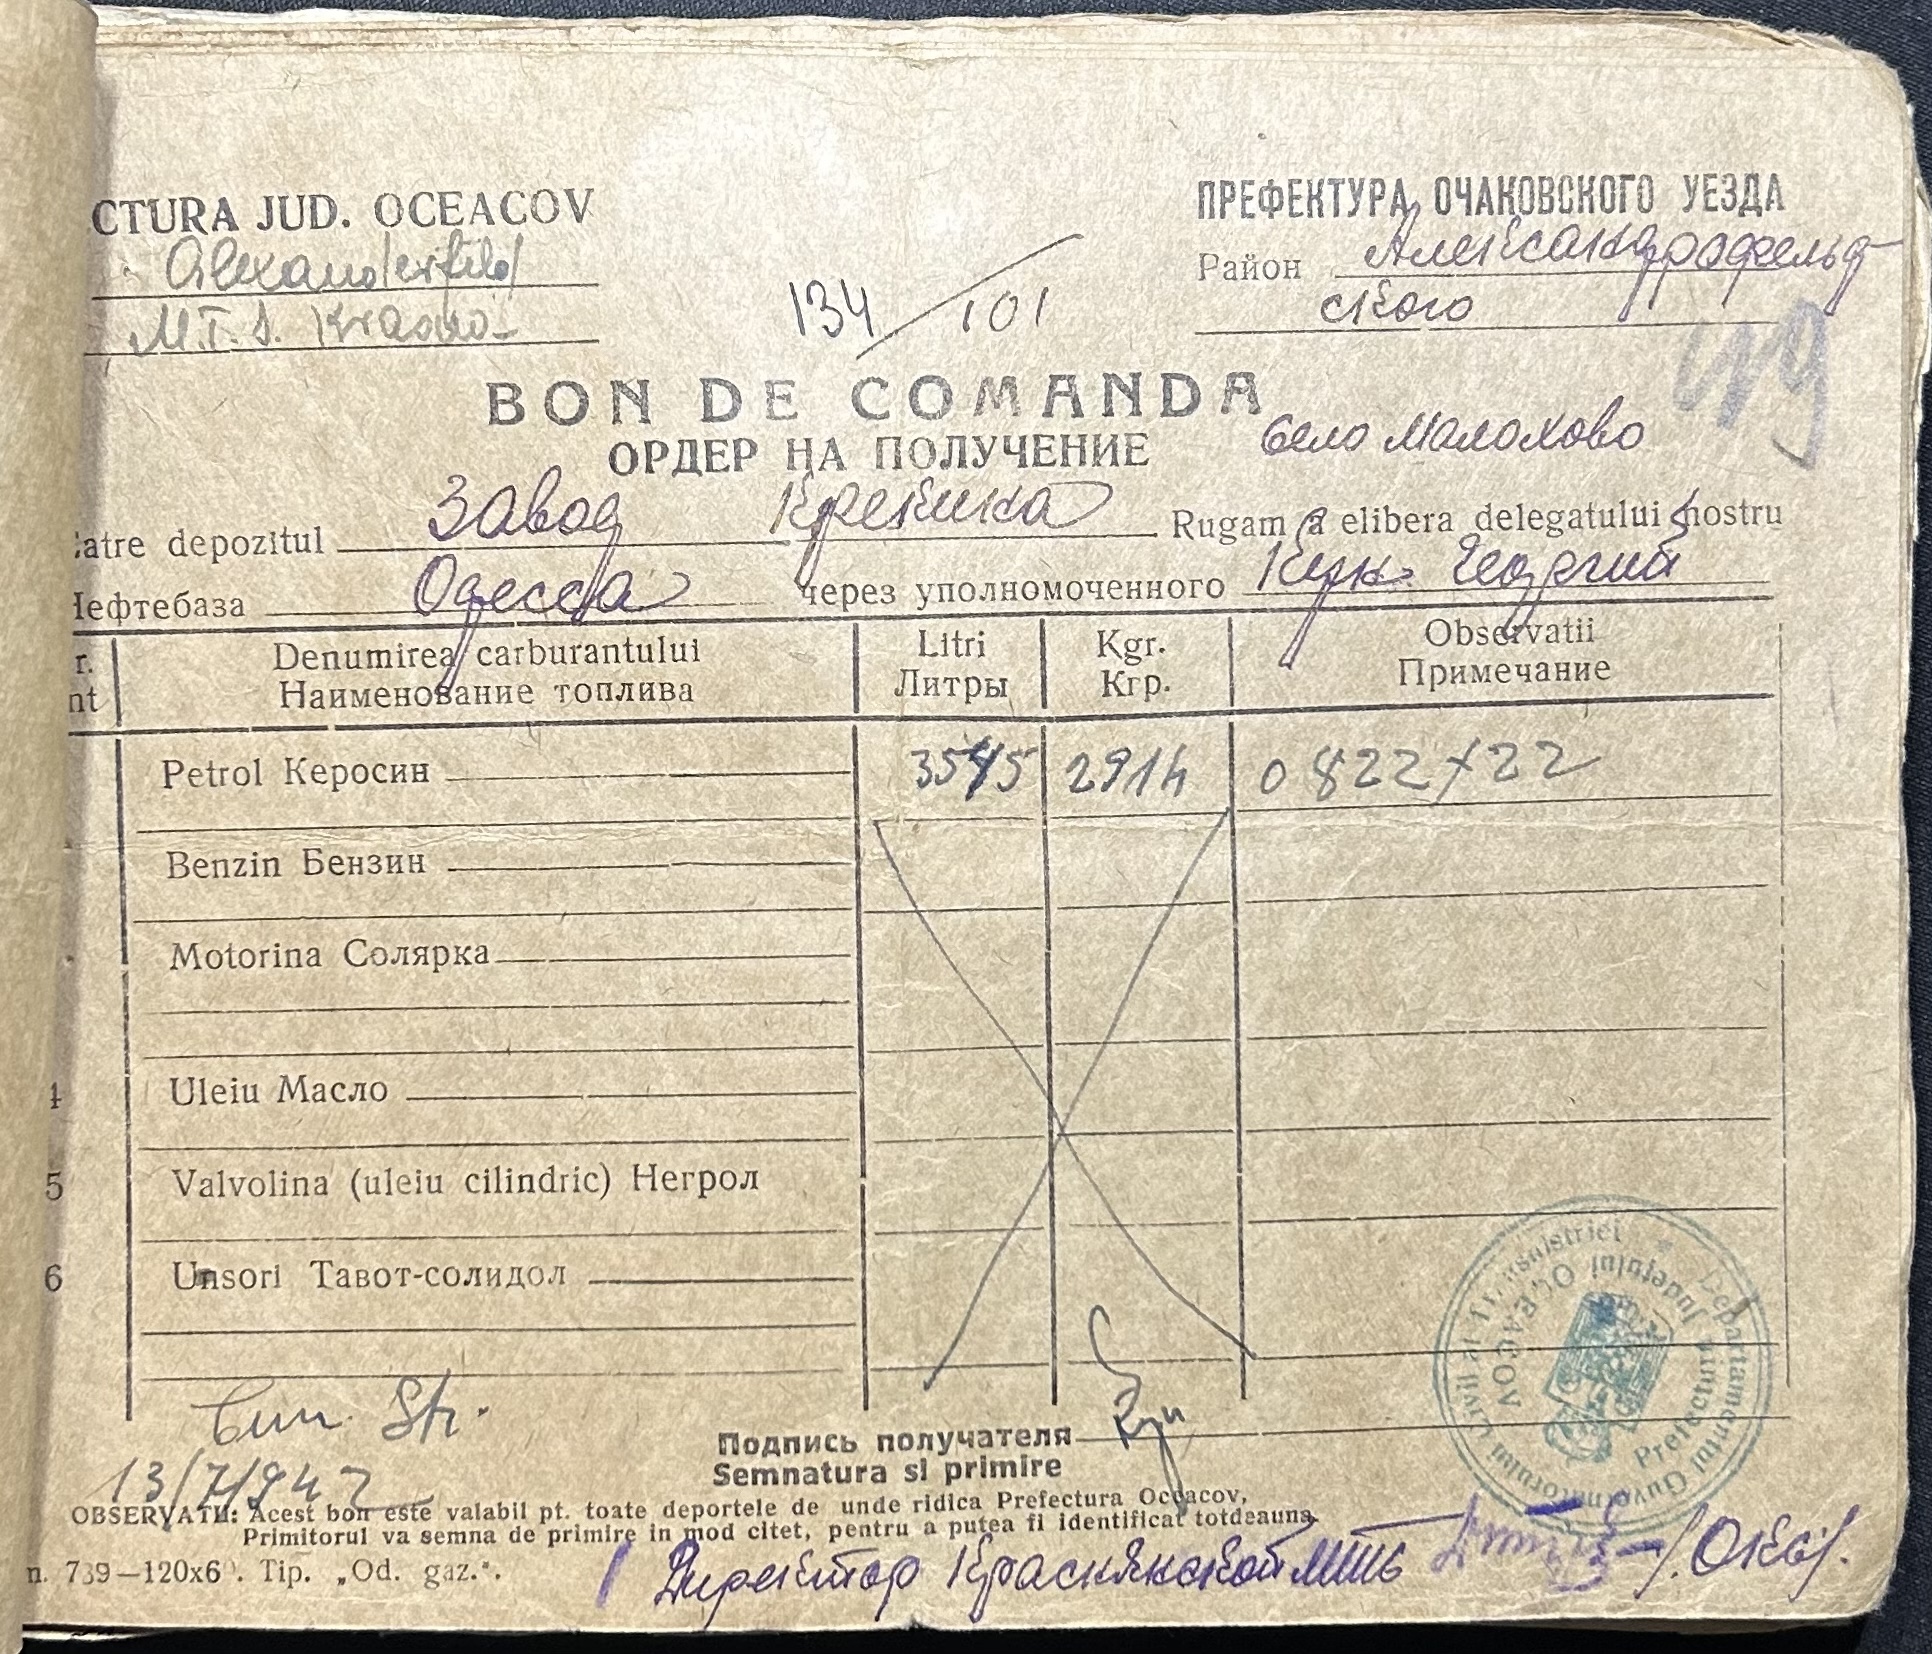 CTURA JUD. OCEACOV
ПРЕФЕКТУРА ОЧАКОВСКОГО УЕЗДА
Alexanderfeld
Район Александрофельд
ского
M.T.S. Krasno-
134/101
119
BON DE COMANDA
ОРДЕР НА ПОЛУЧЕНИЕ
село Малахово
catre depozitul Завод Крекинга Rugam a elibera delegatului nostru
Нефтебаза Одесса через уполномоченного Кунс Георгий
r. Denumirea carburantului Litri Kgr. Observatii
nt Наименование топлива Литры Кгр. Примечание
Petrol Керосин 3545 2914 0822+22
Benzin Бензин
Motorina Солярка
4 Uleiu Масло
5 Valvolina (uleiu cilindric) Негрол
6 Unsori Тавот-солидол
13/7/942
Подпись получателя
Semnatura si primire
Guvernatorul Civil al Transnistriei * Departamentul
Prefectura Județului OCEACOV
OBSERVATII: Acest bon este valabil pt. toate deportele de unde ridica Prefectura Oceacov,
Primitorul va semna de primire in mod citet, pentru a putea fi identificat totdeauna.
n. 739—120x6 . Tip. „Od. gaz.".
Директор Краснянской МТС